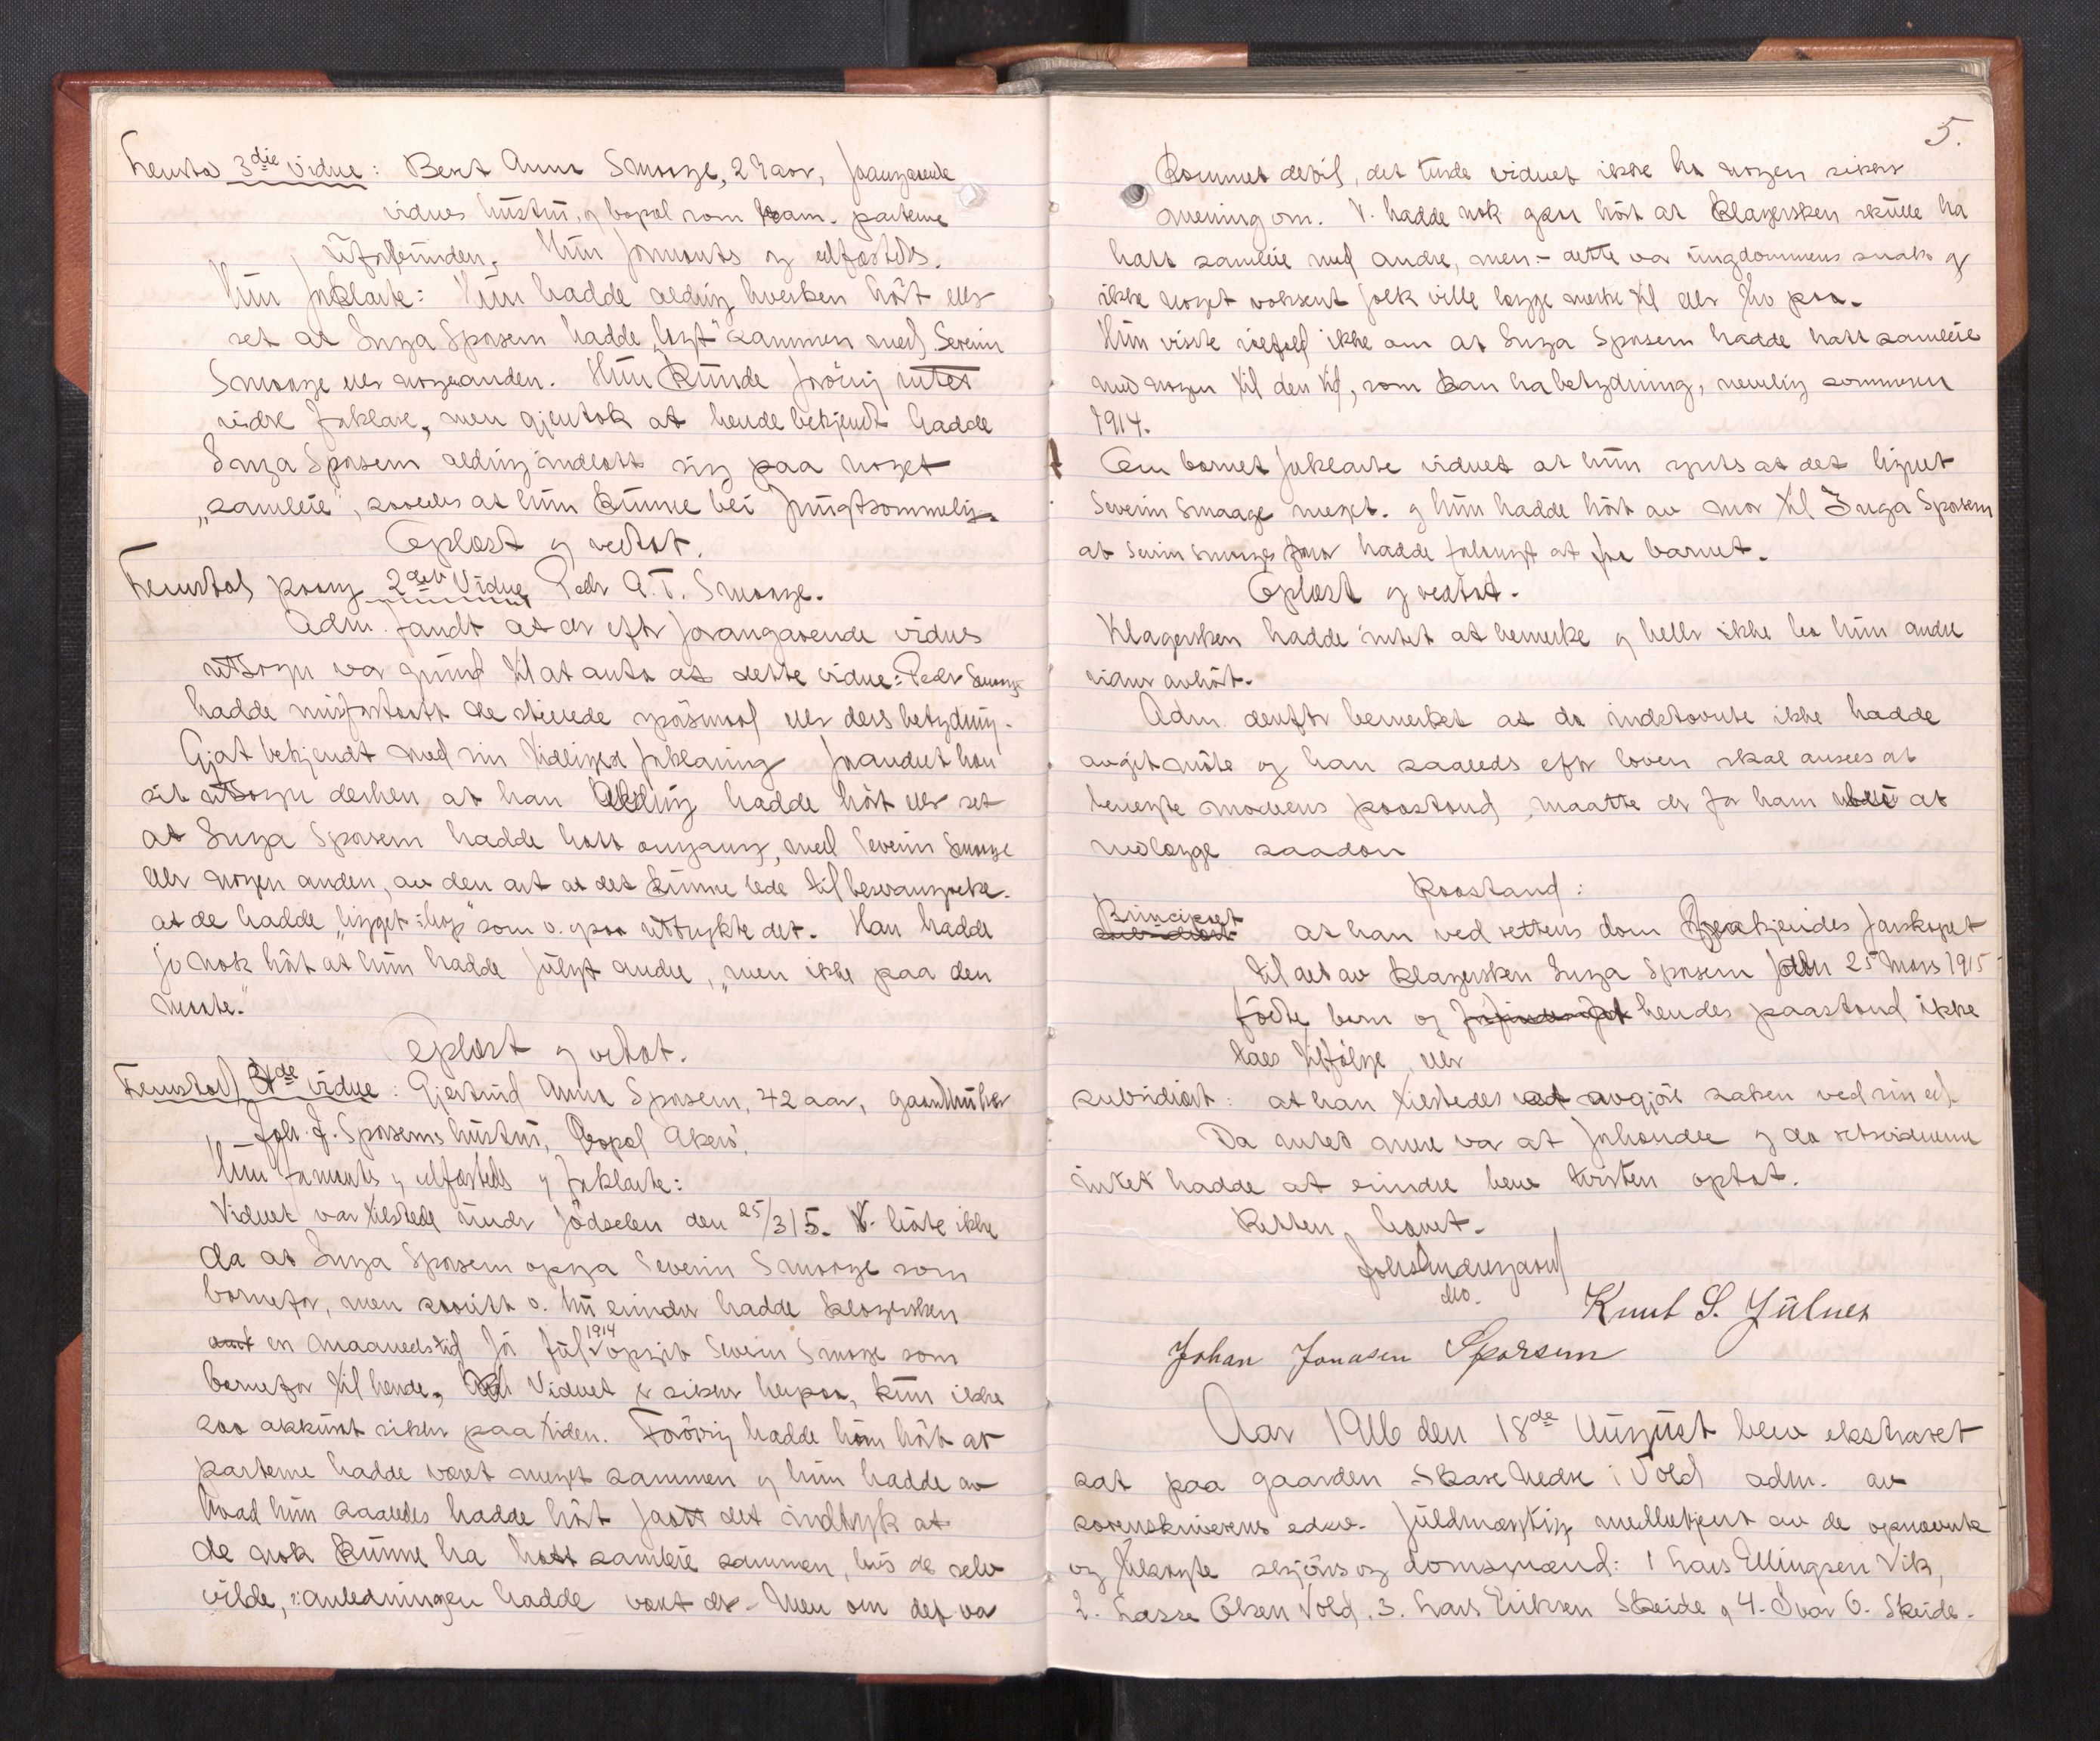 Fremstod 3die vidne: Berit Anna Smaage, 29 aar, foranganende
vidnes hustru, og bopæl som ham. parterne
uforbunden. Hun formantes og edfæstedes.
Hun forklarte: Hun hadde aldrig hverken hört eller
set at Inga Sporsem hadde "ligt" sammen med Severin
Smaage eller nogen anden. Hun kunde forövrig intet
videre forklare, men gjentok at hende bekjendt hadde
Inga Sporsem aldrig indlatt sig paa noget
"samleie", saaledes at hun kunne bli frugtsommelig.
Oplæst og vedtat.
Fremstod paany 2det vidne Peder A. T. Smaage.
Adm. fandt at der efter forangaaende vidnes
utsagn var grund til at anta at dette vidne: Peder Smaage
hadde misforstaatt de stillede spörsmaal eller deres betydning.
Gjort bekjendt med sin tidligere forklaring forandret han
sit utsagn derhen at han aldrig hadde hört eller set
at Inga Sporsem hadde hatt omgang, med Severin Smaage
eller nogen anden, av den art at det kunne lede til besvangrelse.
at de hadde "ligget ihop" som v. ogsaa uttrykte det. Han hadde
jo nok hört at hun hadde fulgt andre, "men ikke paa den
maate."
Oplæst og vedtat.
Fremstod 4de vidne: Gjertrud Anna Sporsem, 42 aar, gaardbruker
Joh. J. Sporsems hustru, bopæl Akerö.
Hun formantes og edfæstedes og forklarte:
Vidnet var tilstede under födselen den 25/3 15. V. hörte ikke
da at Inga Sporsem opga Severin Smaage som
barnefar, men saavitt v. nu erindrer hadde klagersken
en maanedstid för Jul 1914 opgit Severin Smaage som
barnefar til hende. Vidnet er sikker herpaa, kun ikke
saa akkurat sikker paa tiden. Forövrig hadde hun hört at
parterne hadde været meget sammen og hun hadde av
hvad hun saaledes hadde hört faatt det indtryk at
de nok kunne ha hatt samleie sammen, hvis de selv
vilde, : anledningen hadde været der. Men om det var
5.
kommet dertil, det turde vidnet ikke ha nogen sikker
mening om. V. hadde nok ogsaa hört at klagersken skulle ha
hatt samleie med andre, men - dette var ungdommens snak og
ikke noget voksent folk ville lægge merke til eller tro paa.
Hun visste ialfald ikke om at Inga Sporsem hadde hatt samleie
med nogen til den tid, som kan ha betydning, nemlig sommeren
1914.
Om barnet forklarte vidnet at hun syntes at det lignet
Severin Smaage meget. og hun hadde hört av mor til Inga Sporsem
at Severin Smaages far hadde forlangt at faa barnet.
Oplæst og vedtat.
Klagersken hadde intet at bemerke og heller ikke lar hun andre
vidner avhört.
Adm. derefter bemerket at da indstevnte ikke hadde
avgit möte og han saaledes efter loven skal ansees at
benegte moderens paastand, maatte der for ham bli at
nedlægge saadan
Paastand:
Principalt at han ved rettens dom frakjendes farskapet
til det av klagersken Inga Sporsem den 25 Mars 1915
födte barn og hendes paastand ikke
taes tilfölge, eller
subsidiært: at han tilstedes at avgjöre saken ved sin ed.
Da intet mere var at forhandle og da retsvidnerne
intet hadde at erindre blev tvisten optat.
Retten hævet.
Johs Andersgaard
Knut S. Julnes
Johan Jonasen Sporsem
Aar 1916 den 18de August blev ekstraret
sat paa gaarden Skare nedre i Vold adm. av
sorenskriverens edsv. fuldmægtig medbetjent av de opnævnte
og tilsagte skjöns og domsmænd: 1 Lars Ellingsen Vik,
2. Lasse Olsen Vold, 3. Lars Eriksen Skeide og 4. Ivar O. Skeide.